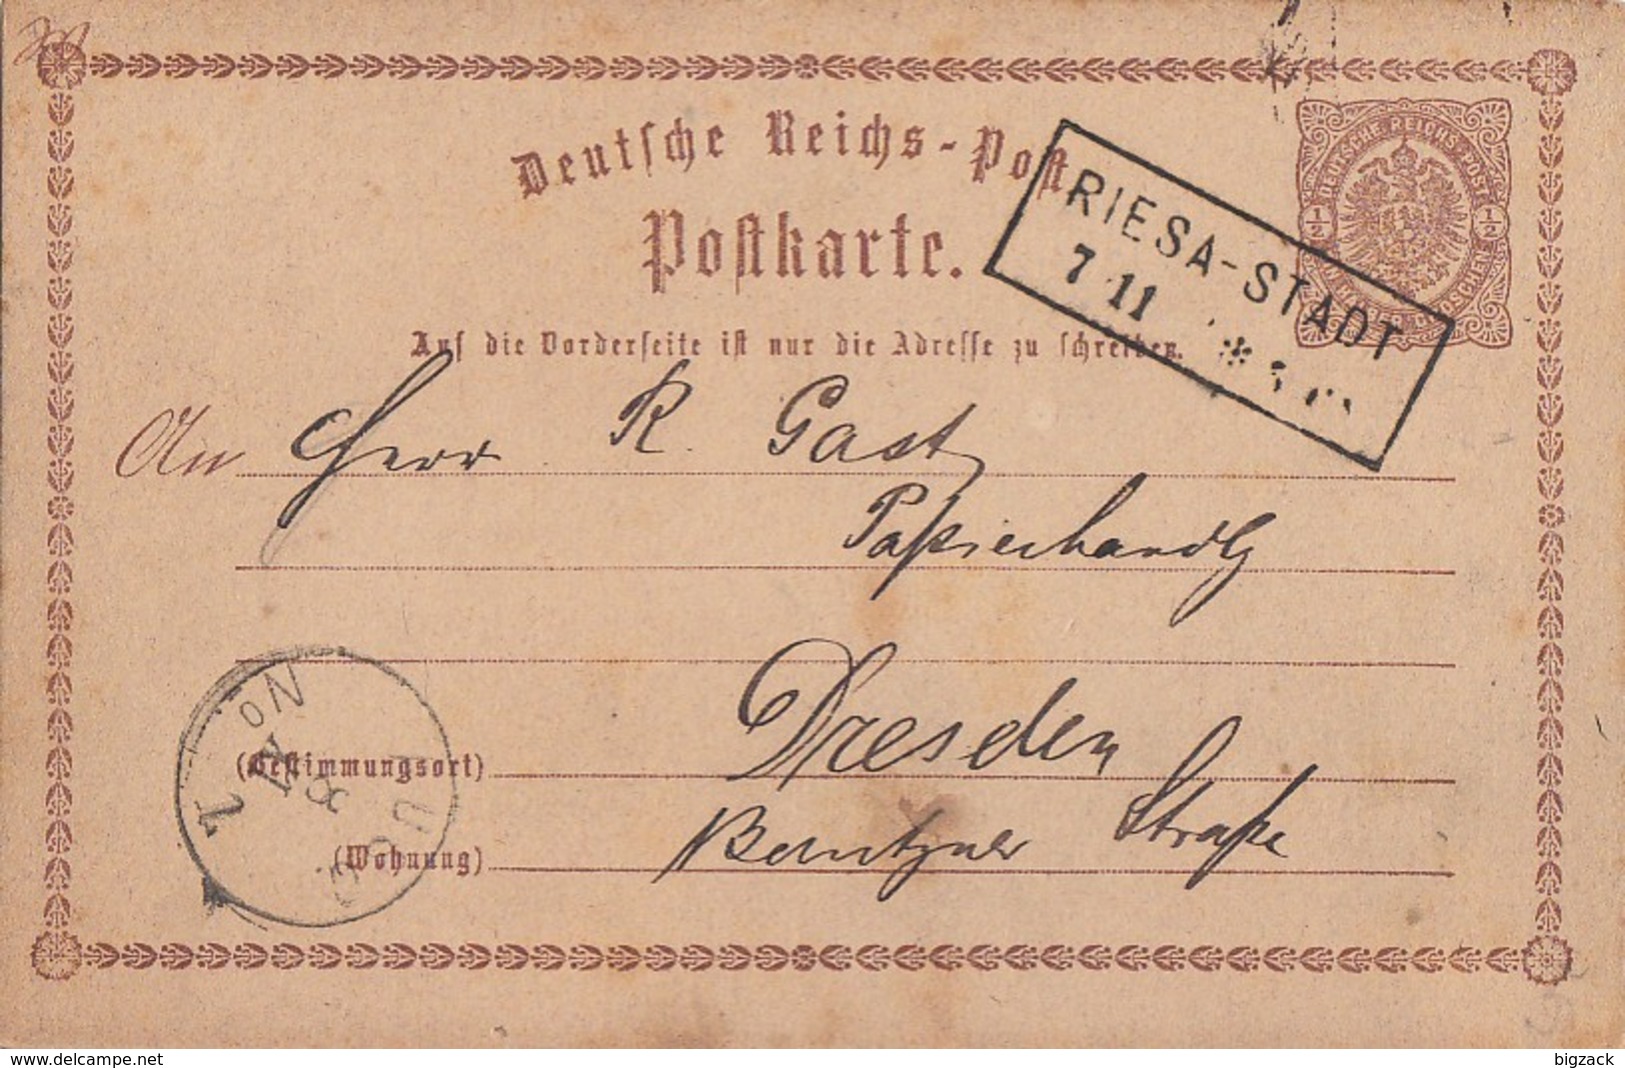 Deutsche Reichs-Post
Postkarte.
DEUTSCHE REICHS-POST
1/2 1/2
RIESA-STADT
7 11
Auf die Vorderseite ist nur die Adresse zu schreiben.
An Herr R. Gast
Papierhandlg
Dresden
(Bestimmungsort)
Straße
(Wohnung)
www.delcampe.net
bigzack